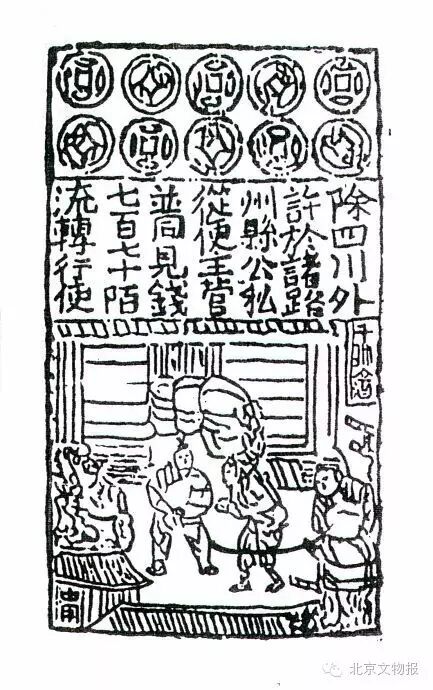 除四川外
許於諸路
州縣公私
從便主管
並同見錢
七百七十陌
流轉行使
北京文物报